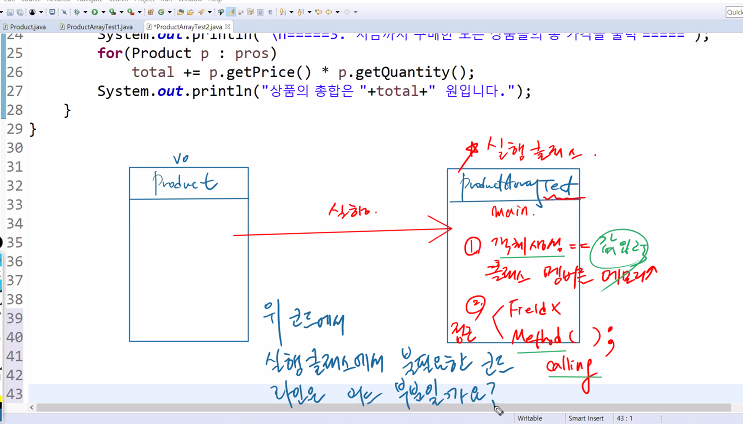 Product.java
ProductArrayTest1.java
*ProductArrayTest2.java
Quick
24 System.out.println("\n=====3. 지금까지 구매한 모든 상품들의 총 가격을 출력 =====");
25 for(Product p : pros)
26 total += p.getPrice() * p.getQuantity();
27 System.out.println("상품의 총합은 "+total+" 원입니다.");
28 }
29 }
30
31
32
33
34
35
36
37
38
39
40
41
42
43
VO
Product
실행.
* 실행클래스.
ProductArrayTest
main.
1. 객체생성 == 값입력
클래스 멤버를 메모리
2. 접근
Field X
Method( );
calling
위 코드에서
실행클래스에서 불필요한 코드
라인은 어느 부분일까요?
Writable
Smart Insert
43 : 1